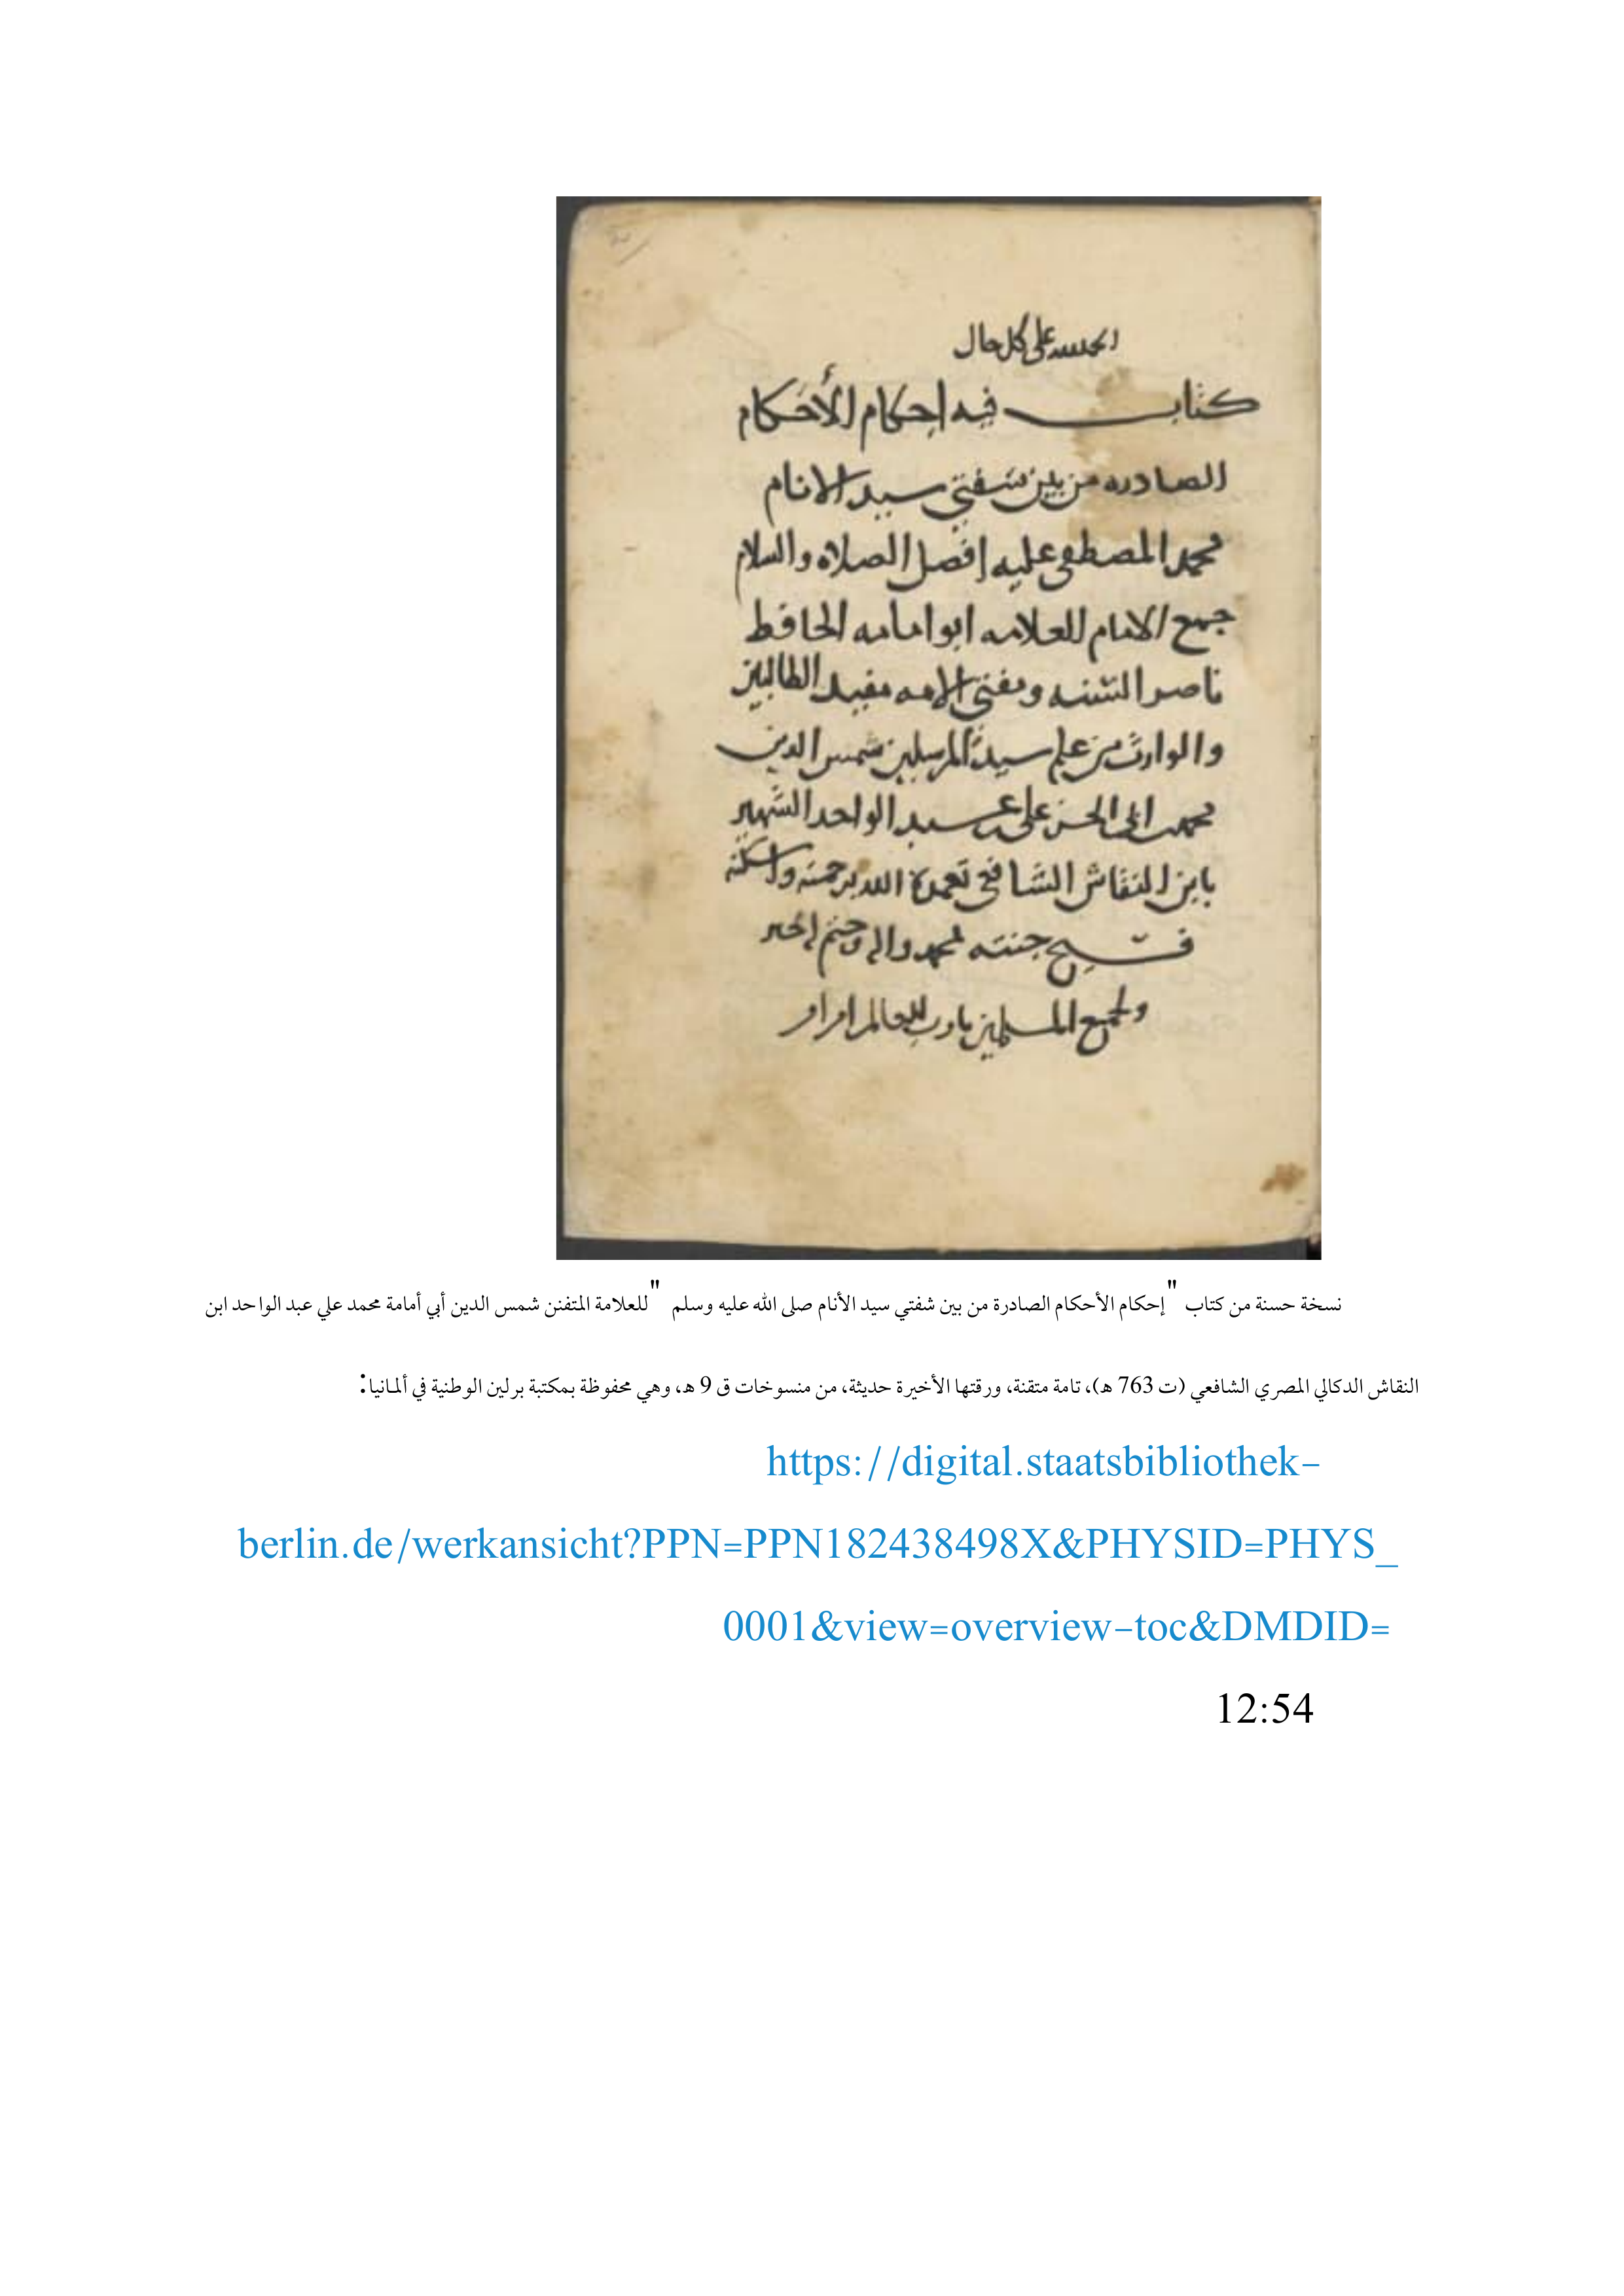 الحمد لله على كل حال
كتاب فيه احكام الأحكام
الصادره من بين شفتي سيد الانام
محمد المصطفى عليه افضل الصلاه والسلام
جمع الامام العلامه ابو امامه الحافظ
ناصر السنه ومفتي الامه مفيد الطالبين
والوارث من علم سيد المرسلين شمس الدين
محمد الحسن على عبد الواحد الشهير
بابن النقاش الشافعي تغمده الله برحمته واسكنه
فسيح جنته بمحمد واله وختم بخير
ولجميع المسلمين يا رب العالم
نسخة حسنة من كتاب "إحكام الأحكام الصادرة من بين شفتي سيد الأنام صلى الله عليه وسلم" للعلامة المتفنن شمس الدين أبي أمامة محمد علي عبد الواحد ابن
النقاش الدكالي المصري الشافعي (ت 763 هـ)، تامة متقنة، ورقتها الأخيرة حديثة، من منسوخات ق 9 هـ، وهي محفوظة بمكتبة برلين الوطنية في ألمانيا:
https://digital.staatsbibliothek-
berlin.de/werkansicht?PPN=PPN182438498X&PHYSID=PHYS_
0001&view=overview-toc&DMDID=
12:54